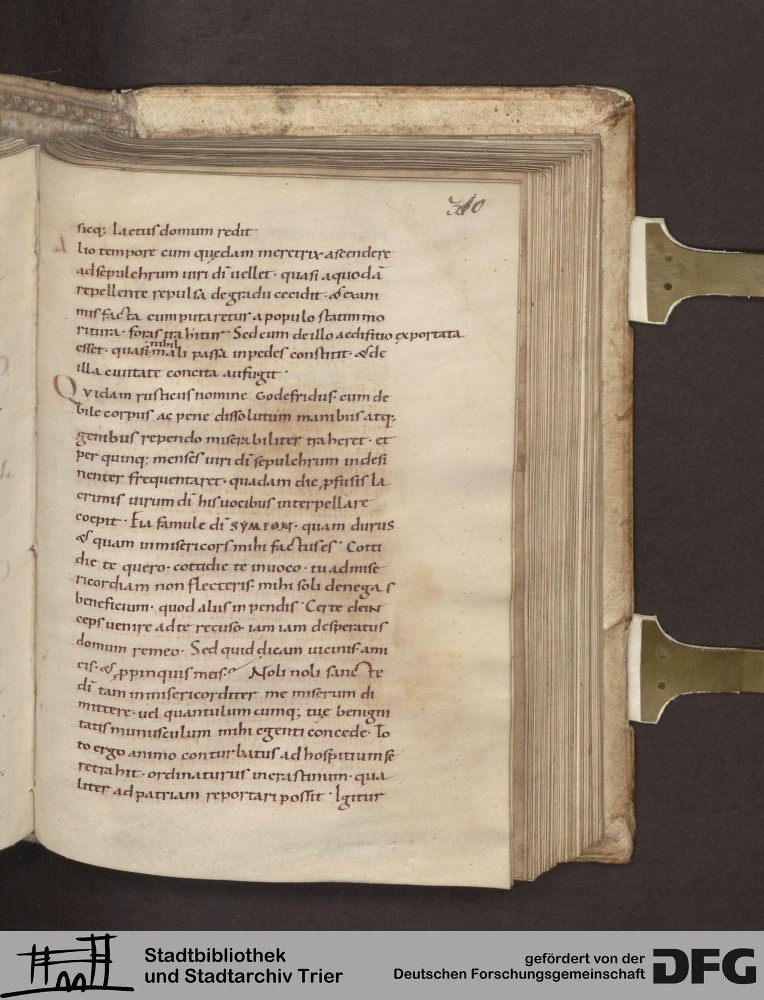 310
sicq; laetus domum redit·
Alio tempore cum quędam meretrix ascendere
ad sepulchrum uiri dī uellet· quasi a quodā
repellente repulsa de gradu cecidit· & exani
mis facta cum putaretur a populo statim mo
ritura· foras trahitur· Sed cum de illo aedifitio exportata
esset· quasi nihil mali passa in pedes constitit· & de
illa ciuitate concita aufugit·
Quidam rusticus nomine Godefridus· cum de
bile corpus ac pene dissolutum manibus atq;
genibus rependo miserabiliter traheret· et
per quinq; menses uiri dī sepulchrum indesi
nenter frequentaret· quadam die ꝓfusis la
crimis uirum dī his uocibus interpellare
coepit· Eia famule dī SYMEON· quam durus
& quam inmisericors mihi factus es· Cotti
die te quero· cottidie te inuoco· tu ad mise
ricordiam non flecteris· mihi soli denegas
beneficium· quod aliis inpendis· Certe dein
ceps uenire ad te recuso· iam iam desperatus
domum remeo· Sed quid dicam uicinis· ami
cis· & ꝓpinquis meis· Noli noli sancte
dī tam inmisericorditer me miserum di
mittere· uel quantulumcumq; tuę benigni
tatis munusculum mihi egenti concede· To
to ergo animo conturbatus ad hospitium se
retrahit· ordinaturus incrastinum· qua
liter ad patriam reportari possit· Igitur
Stadtbibliothek
und Stadtarchiv Trier
gefördert von der
Deutschen Forschungsgemeinschaft
DFG